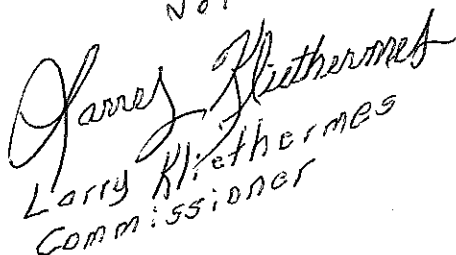 Larry Kliethermes
Larry Kliethermes
Commissioner